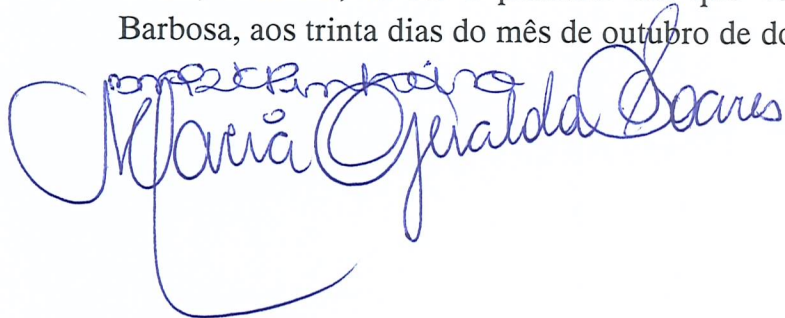 Barbosa, aos trinta dias do mês de outubro de do
Maria Geralda Soares